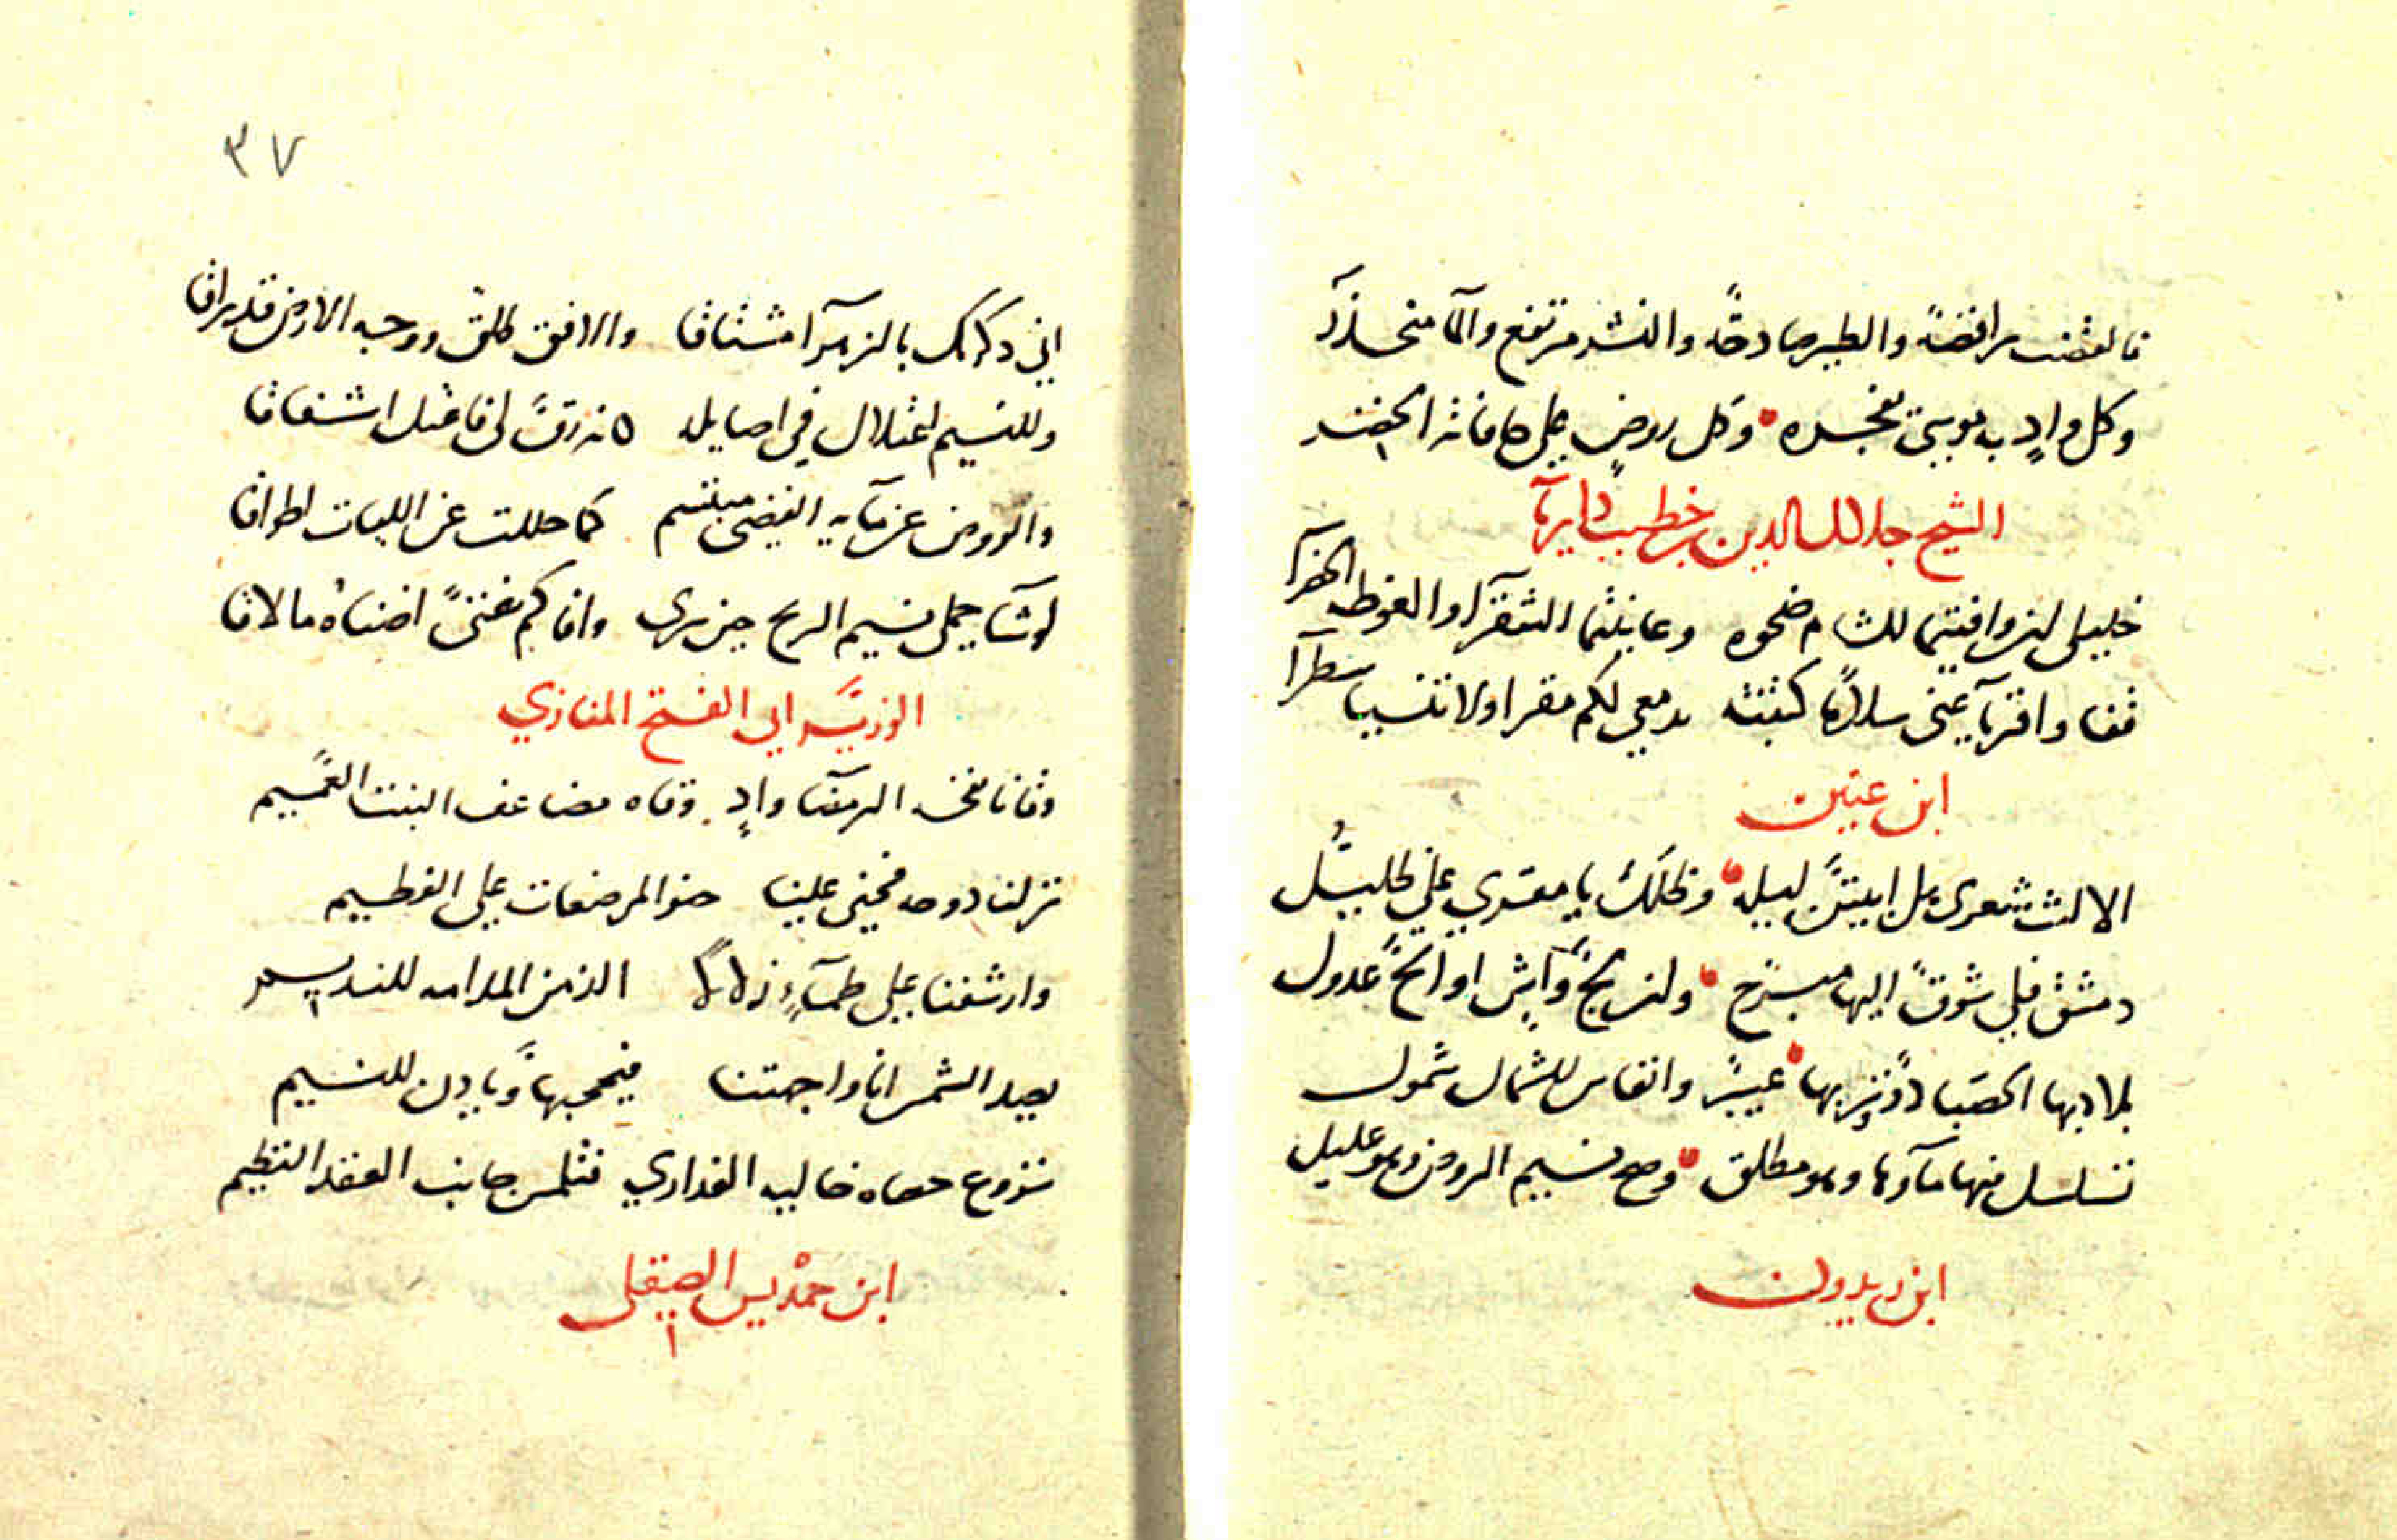 فالغصن راقصة والطير صادحة والنشر مرتفع والمآ منحدر
وكل واد به موسى يفجره وكل روض على حافاته الخضر
الشيخ جلال الدين بن خطيب داريآ
خليلي ان وافيتما الشام ضحوه وعاينتما الشقرا والغوطه الخضرآ
قفا واقرآ عني سلامًا كتبته بدمعي لكم مقرا ولا تنسيا سطرآ
ابن عنين
الا ليت شعري هل ابيتنّ ليله وظلك يا مقرى علي ظليل
دمشق فبي شوقٌ اليها مبرح وان لجّ واشٍ او الحّ عذول
بلاد بها الحصباء درٌ وتربها عبيرٌ وانفاس الشمال شمول
تسلسل منها مآوها وهو مطلق وصح نسيم الروض وهو عليل
ابن زيدون
٣٧
اني ذكرتك بالزهرآ مشتاقا والافق طلق ووجه الارض قد راقا
وللنسيم اعتلال في اصايله كانه رقّ لي فاعتل اشفاقا
والروض عن مآيه الفضي مبتسم كما حللت عن اللبات اطواقا
لو شآ حملي نسيم الريح حين سرى وافاكم بفتىً اضناهُ ما لاقا
الوزير ابي الفتح المنازي
وقانا لفحة الرمضآ وادٍ وقاه مضاعف النبت العميم
نزلنا دوحه فحنى علينا حنو المرضعات على الفطيم
وارشفنا على ظمآءٍ زلالًا الذ من المدامه للنديم
يصد الشمس انا واجهتنا فيحجبها ويأذن للنسيم
تروع حصاه حاليه العذاري فتلمس جانب العقد النظيم
ابن حمديس الصقلي